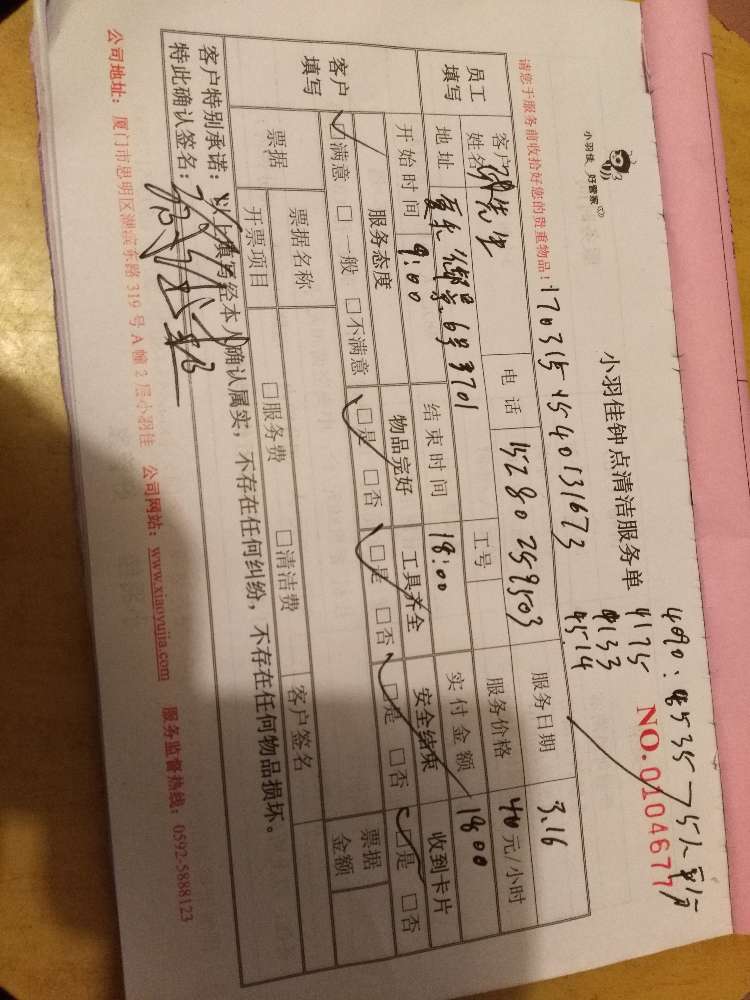 小羽佳 好管家
小羽佳钟点清洁服务单
4090: 8535 7
4175
4133
4514
NO.0104677
请您于服务前收拾好您的贵重物品!
170315154540131673
员工填写
客户姓名 先生
电话 15280259503
服务日期 3.16
地址 6号3701
工号
服务价格 40元/小时
开始时间 9:00
结束时间 18:00
实付金额 1800
客户填写
服务态度 物品完好 工具齐全 安全结束 收到卡片
☑满意 □一般 □不满意 ☑是 □否 ☑是 □否 ☑是 □否 ☑是 □否
票据
票据名称
客户签名
票据金额
开票项目
□服务费 □清洁费
客户特别承诺:以上填写经本人确认属实,不存在任何纠纷,不存在任何物品损坏。
特此确认签名:
公司地址:厦门市思明区湖滨东路319号A幢2层小羽佳 公司网站:www.xiaoyujia.com 服务监督热线:0592-5888123